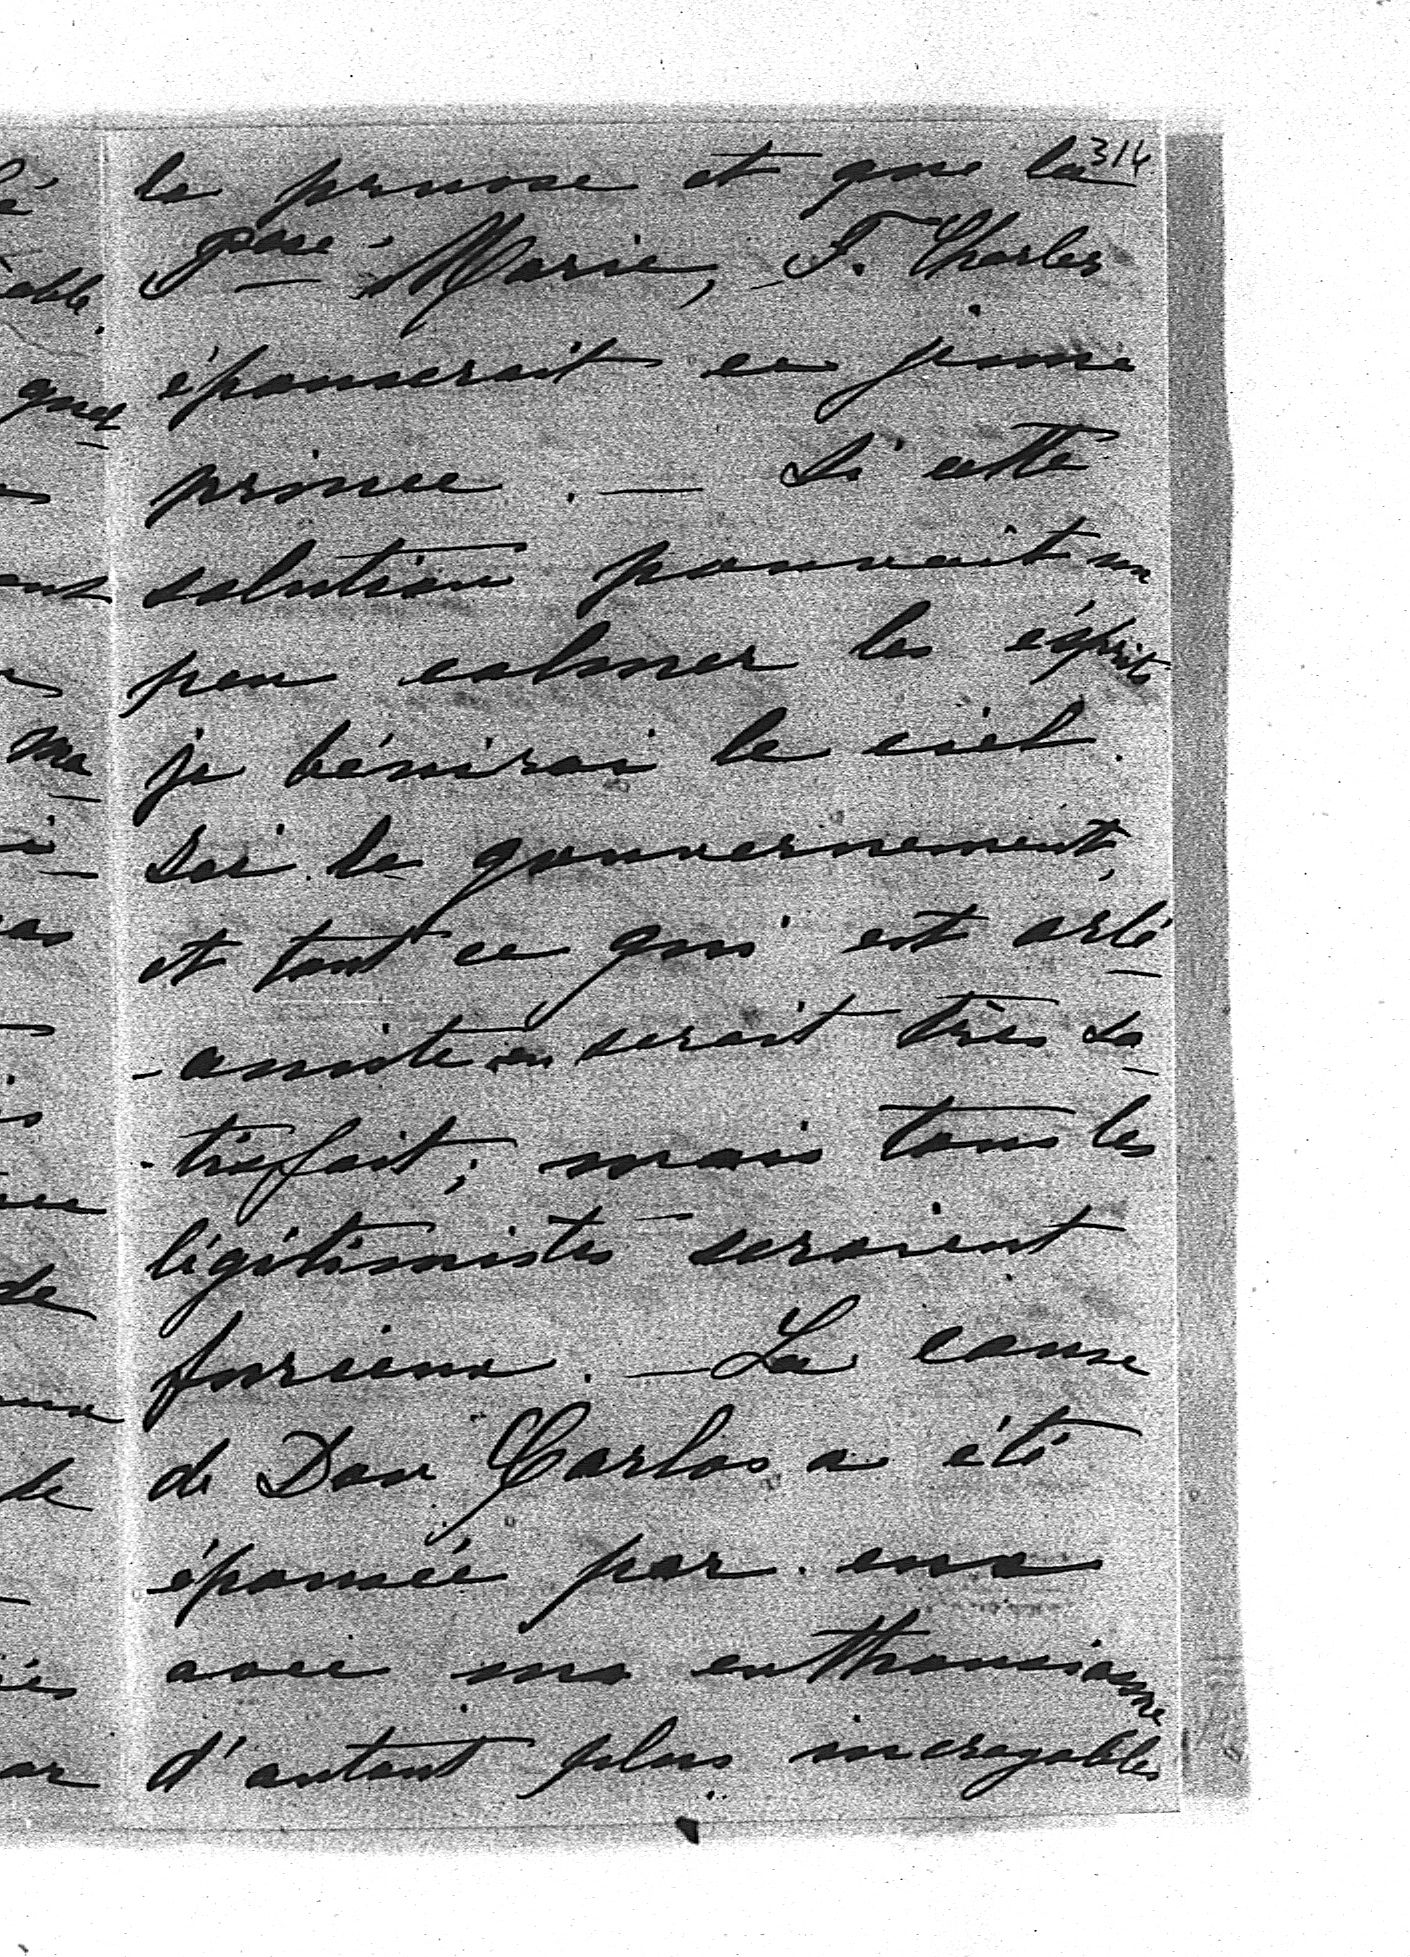 314
le pense et que la
Psse Marie, F. Charles
épouserait ce jeune
prince. — Si cette
solution pouvait un
peu calmer les ésprits
je bénirai le ciel.
Ici le gouvernement,
et tout ce qui est orlé
-aniste en serait très sa
-tisfait; mais tous les
légitimistes seraient
furieux. — La cause
de Don Carlos a été
épousée par eux
avec un enthousiasme
d'autant plus incroyables